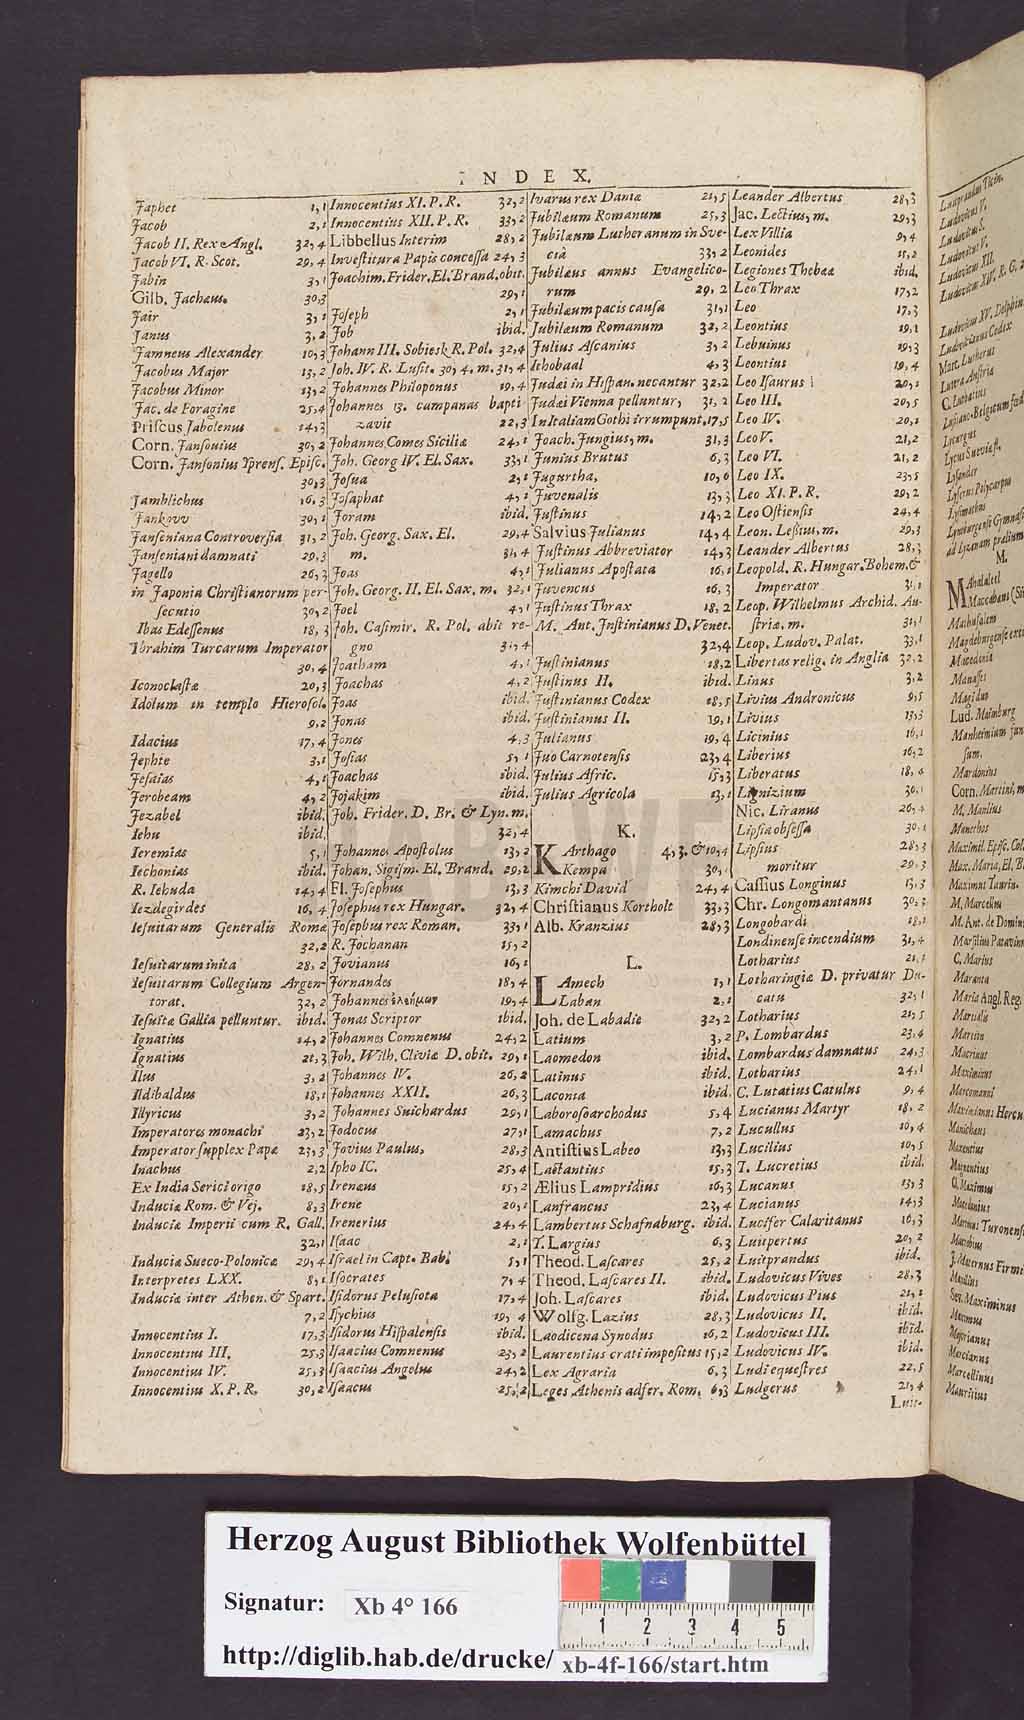 INDEX.
Japhet 1,1
Jacob 2,1
Jacob II. Rex Angl. 32,4
Jacob VI. R. Scot. 29,4
Jabin 3,1
Gilb. Jachæus. 30,3
Jair 3,1
Janus 3,2
Jamneus Alexander 10,3
Jacobus Major 13,2
Jacobus Minor 13,2
Jac. de Foragine 25,4
Priscus Jabolenus 14,3
Corn. Jansonius 30,2
Corn. Jansonius Yprens. Episc.
30,3
Jamblichus 16,3
Jankovv 30,1
Janseniana Controversia 31,2
Janseniani damnati 29,3
Jagello 26,3
in Japonia Christianorum per-
secutio 30,2
Ibas Edessenus 18,3
Ibrahim Turcarum Imperator
30,4
Iconoclastæ 20,3
Idolum in templo Hierosol.
9,2
Idacius 17,4
Jephte 3,1
Jesaias 4,1
Jerobeam 4,2
Jezabel ibid.
Iehu ibid.
Ieremias 5,1
Iechonias ibid.
R. Iehuda 14,4
Iezdegirdes 16,4
Iesuitarum Generalis Romæ
32,2
Iesuitarum inita 28,2
Iesuitarum Collegium Argen-
torat. 32,2
Iesuitæ Gallia pelluntur. ibid.
Ignatius 14,2
Ignatius 21,3
Ilus 3,2
Ildibaldus 18,1
Illyricus 3,2
Imperatores monachi 23,2
Imperator supplex Papæ 23,3
Inachus 2,2
Ex India Serici origo 18,5
Induciæ Rom. & Vej. 8,3
Induciæ Imperii cum R. Gall.
32,1
Induciæ Sueco-Polonicæ 29,4
Interpretes LXX. 8,1
Induciæ inter Athen. & Spart.
7,2
Innocentius I. 17,3
Innocentius III. 25,3
Innocentius IV. 25,3
Innocentius X. P. R. 30,2
Innocentius XI. P. R. 32,2
Innocentius XII. P. R. 33,2
Libbellus Interim 28,2
Investitura Papis concessa 24,3
Joachim. Frider. El. Brand. obit.
29,1
Joseph 2,1
Job ibid.
Johann III. Sobiesk R. Pol. 32,4
Joh. IV. R. Lusit. 30,4. m. 31,4
Johannes Philoponus 19,4
Johannes 13. campanas bapti-
zavit 22,3
Johannes Comes Siciliæ 24,1
Joh. Georg IV. El. Sax. 33,1
Josua 2,1
Josaphat 4,1
Joram ibid.
Joh. Georg. Sax. El. 29,4
m. 31,4
Joas 4,1
Joh. Georg. II. El. Sax. m. 32,1
Joel 4,1
Joh. Casimir. R. Pol. abit re-
gno 31,4
Joatham 4,1
Joachas 4,2
Joas ibid.
Jonas ibid.
Jones 4,3
Josias 5,1
Joachas ibid.
Jojakim ibid.
Joh. Frider. D. Br. & Lyn. m.
32,4
Johannes Apostolus 13,2
Johan. Sigism. El. Brand. 29,2
Fl. Josephus 13,3
Josephus rex Hungar. 32,4
Josephus rex Roman. 33,1
R. Jochanan 15,2
Jovianus 16,1
Jornandes 18,4
Johannes ἐλεήμων 19,4
Jonas Scriptor ibid.
Johannes Comnenus 24,2
Joh. Wilh. Cliviæ D. obit. 29,1
Johannes IV. 26,2
Johannes XXII. 26,3
Johannes Suichardus 29,1
Jodocus 27,1
Jovius Paulus, 28,3
Ipho IC. 25,4
Irenæus 15,2
Irene 20,1
Irenerius 24,4
Isaac 2,1
Israel in Capt. Bab. 5,1
Isocrates 7,4
Isidorus Pelusiota 17,4
Isychius 19,4
Isidorus Hispalensis ibid.
Isaacius Comnenus 23,2
Isaacius Angelus 24,2
Isaacus 25,2
Ivarus rex Daniæ 21,5
Jubilæum Romanum 25,3
Jubilæum Lutheranum in Sve-
ciâ 33,2
Jubilæus annus Evangelico-
rum 29,2
Jubilæum pacis causa 31,1
Jubilæum Romanum 32,2
Julius Ascanius 3,2
Ithobaal 4,3
Judæi in Hispan. necantur 32,2
Judæi Vienna pelluntur, 31,2
In Italiam Gothi irrumpunt. 17,5
Joach. Jungius, m. 31,3
Junius Brutus 6,3
Jugurtha, 10,6
Juvenalis 13,3
Justinus 14,2
Salvius Julianus 14,4
Justinus Abbreviator 14,3
Julianus Apostata 16,1
Juvencus 16,3
Justinus Thrax 18,2
M. Ant. Justinianus D. Venet.
32,4
Justinianus 18,2
Justinus II. ibid.
Justinianus Codex 18,5
Justinianus II. 19,1
Julianus 19,4
Juo Carnotensis 23,4
Julius Afric. 15,3
Julius Agricola 13,1
K.
KArthago 4,3. & 10,4
Kempa 30,
Kimchi David 24,4
Christianus Kortholt 33,3
Alb. Kranzius 28,3
L.
LAmech 1,1
Laban 2,1
Joh. de Labadie 32,2
Latium 3,2
Laomedon ibid.
Latinus ibid.
Laconia ibid.
Laborosoarchodus 5,4
Lamachus 7,2
Antistius Labeo 13,3
Lactantius 15,3
Ælius Lampridius 16,3
Lanfrancus 23,4
Lambertus Schafnaburg. ibid.
T. Largius 6,3
Theod. Lascares 25,2
Theod. Lascares II. ibid.
Joh. Lascares ibid.
Wolfg. Lazius 28,3
Laodicena Synodus 16,2
Laurentius crati impositus 15,2
Lex Agraria 6,3
Leges Athenis adfer. Rom. 6,3
Leander Albertus 28,3
Jac. Lectius, m. 29,3
Lex Villia 9,4
Leonides 15,2
Legiones Thebææ ibid.
Leo Thrax 17,2
Leo 17,3
Leontius 19,1
Lebuinus 19,3
Leontius 19,4
Leo Isaurus 20,1
Leo III. 20,5
Leo IV. 20,1
Leo V. 21,2
Leo VI. 21,2
Leo IX. 23,5
Leo XI. P. R. 29,2
Leo Ostiensis 24,4
Leon. Lessius, m. 29,3
Leander Albertus 28,3
Leopold. R. Hungar. Bohem. &
Imperator 31,1
Leop. Wilhelmus Archid. Au-
striæ. m. 31,1
Leop. Ludov. Palat. 33,1
Libertas relig. in Anglia 32,2
Linus 3,2
Livius Andronicus 9,5
Livius 13,3
Licinius 16,1
Liberius 16,2
Liberatus 18,4
Lignizium 30,1
Nic. Liranus 26,4
Lipsia obsessa 30,1
Lipsius 28,3
moritur 29,3
Cassius Longinus 13,3
Chr. Longomantanus 30,3
Longobardi 18,1
Londinense incendium 31,4
Lotharius 21,1
Lotharingiæ D. privatur Du-
catu 32,1
Lotharius 21,5
P. Lombardus 23,4
Lombardus damnatus 24,3
Lotharius 24,1
C. Lutatius Catulus 9,4
Lucianus Martyr 18,2
Lucullus 10,4
Lucilius 10,5
T. Lucretius ibid.
Lucanus 13,3
Lucianus 14,3
Lucifer Calaritanus 16,3
Luitpertus 20,2
Luitprandus ibid.
Ludovicus Vives 28,3
Ludovicus Pius 21,1
Ludovicus II. ibid.
Ludovicus III. ibid.
Ludovicus IV. ibid.
Ludi equestres 22,5
Ludgerus 21,4
Luit-
Luitprandus Ticin.
Ludovicus V.
Ludovicus S.
Ludovicus V.
Ludovicus XII.
Ludovicus XIV. R. G.
Ludovicus XV. Delphin
Ludovicianus Codex
Mart. Lutherus
Lutera Austria
C. Lutatius
Lycurgus
Lysander
Lyserus Polycarpus
Lysimachus
M.
MAhalaleel
Maccabæus
Mathusalem
Macedonia
Manasses
Lud. Maimburg
Manheimium
Mardonius
Corn. Martini, m
M. Manlius
Manethus
Maximil. Episc. Col.
Max. Maria, El. B
Maximus Taurin.
M. Marcellus
M. Ant. de Domin
Marsilius Patavin
C. Marius
Maria Angl. Reg.
Martialis
Macrinus
Maximinus
Marcomanni
Maximianus Hercu
Manichæus
Maxentius
Magnentius
Cl. Maximus
Macedonius
Martinus Turonens
J. Maternus Firmi
Maximus
Majorianus
Marcianus
Marcellinus
Mauritius
HAB WF
Herzog August Bibliothek Wolfenbüttel
Signatur: Xb 4° 166
1 2 3 4 5
http://diglib.hab.de/drucke/ xb-4f-166/start.htm